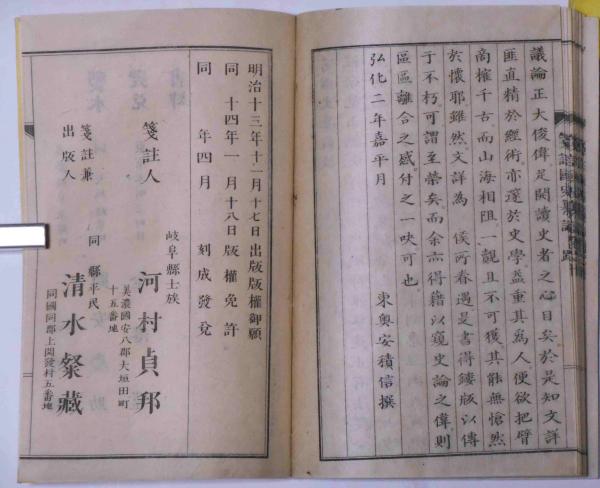 議論正大俊偉足開讀史者之心目矣於是知文詳
匪直精於經術亦邃於史學益重其爲人便欲把臂
商榷千古而山海相阻一覿且不可獲其能無愴然
於懷耶雖然文詳爲 侯所眷遇是書得鏤版以傳
于不朽可謂至榮矣而余亦得藉以窺史論之偉則
區區離合之感付之一吷可也
弘化二年嘉平月
東奧安積信撰
明治十三年十一月十七日出版版權御願
同 十四年一月十八日版權免許
同 年四月 刻成發兌
岐阜縣士族
箋註人 河村貞邦
美濃國安八郡大垣田町
十五番地
同 縣平民
箋註兼
出版人 清水粲藏
同國同郡上開發村五番地